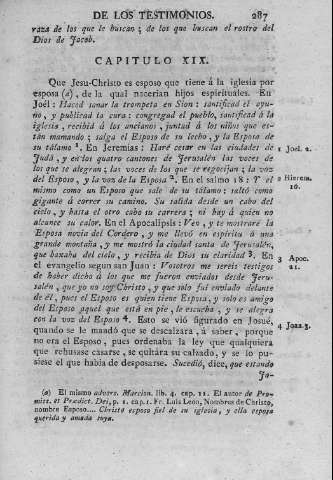 DE LOS TESTIMONIOS. 287
raza de los que le buscan; de los que buscan el rostro del
Dios de Jacob.
CAPITULO XIX.
Que Jesu-Christo es esposo que tiene á la iglesia por
esposa (a), de la qual nacerian hijos espirituales. En
Joël: Haced sonar la trompeta en Sion: santificad el ayu-
no, y publicad la cura: congregad el pueblo, santificad á la
iglesia, recibid á los ancianos, juntad á los niños que es-
tán mamando; salga el Esposo de su lecho, y la Esposa de
su tálamo 1. En Jeremías: Haré cesar en las ciudades de
1 Joel. 2.
Judá, y en los quatro cantones de Jerusalén las voces de
los que se alegran; las voces de los que se regocijan; la voz
del Esposo, y la voz de la Esposa 2. En el salmo 18: Y él
2 Hierem. 16.
mismo como un Esposo que sale de su tálamo: saltó como
gigante á correr su camino. Su salida desde un cabo del
cielo, y hasta el otro cabo su carrera; ni hay á quien no
alcance su calor. En el Apocalipsis: Ven, y te mostraré la
Esposa novia del Cordero, y me llevó en espíritu á una
grande montaña, y me mostró la ciudad santa de Jerusalén,
que baxaba del cielo, y recibia de Dios su claridad 3. En
3 Apoc. 21.
el evangelio segun san Juan: Vosotros me sereis testigos
de haber dicho á los que me fueron enviados desde Jeru-
salén, que yo no soy Christo, y que solo fui enviado delante
de él, pues el Esposo es quien tiene Esposa, y solo es amigo
del Esposo aquel que está en pie, le escucha, y se alegra
con la voz del Esposo 4. Esto se vió figurado en Josué,
4 Joan. 3.
quando se le mandó que se descalzara, á saber, porque
no era el Esposo, pues ordenaba la ley que qualquiera
que rehusase casarse, se quitára su calzado, y se lo pu-
siese el que habia de desposarse. Sucedió, dice, que estando
Je-
(a) El mismo advers. Marcion. lib. 4. cap. 11. El autor de Pro-
miss. et Prædict. Dei, p. 1. cap. 1. Fr. Luis Leon, Nombres de Christo,
nombre Esposo.... Christo esposo fiel de su iglesia, y ella esposa
querida y amada suya.